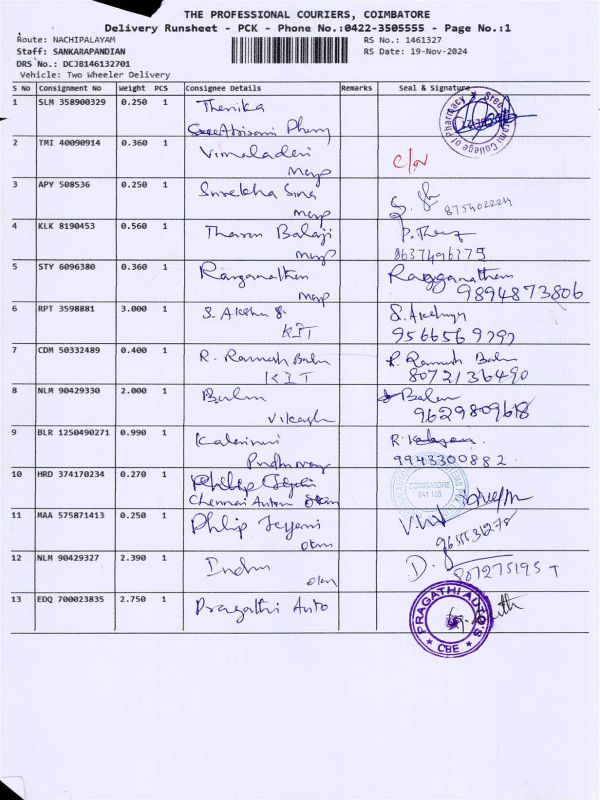 THE PROFESSIONAL COURIERS, COIMBATORE
Delivery Runsheet - PCK - Phone No.:0422-3505555 - Page No.:1
Route: NACHIPALAYAM
RS No.: 1461327
Staff: SANKARAPANDIAN
RS Date: 19-Nov-2024
DRS No.: DCJB146132701
Vehicle: Two Wheeler Delivery
S No Consignment No Weight PCS Consignee Details Remarks Seal & Signature
1 SLM 358900329 0.250 1 Thenika
2 TMI 40090914 0.360 1 Vimaladevi
3 APY 508536 0.250 1 Surekha
8754022204
4 KLK 8190453 0.560 1 Tharun Balaji
8637496375
5 STY 6096380 0.360 1 Ranganathan Ragganathan
9894873806
6 RPT 3598881 3.000 1 S. S.
KIT 9566569797
7 CDM 50332489 0.400 1 R. Ramesh Babu R. Ramesh Babu
KIT 8072136490
8 NLM 90429330 2.000 1 Balu
Vikash 9629809618
9 BLR 1250490271 0.990 1 R.
9943300882
10 HRD 374170234 0.270 1 Philip
Chennai Auto COIMBATORE
641 105
11 MAA 575871413 0.250 1 Philip Jeyani
9655531278
12 NLM 90429327 2.390 1 Indhu D.
13 EDQ 700023835 2.750 1 Pragathi Auto PRAGATHI AUTO'S
CBE